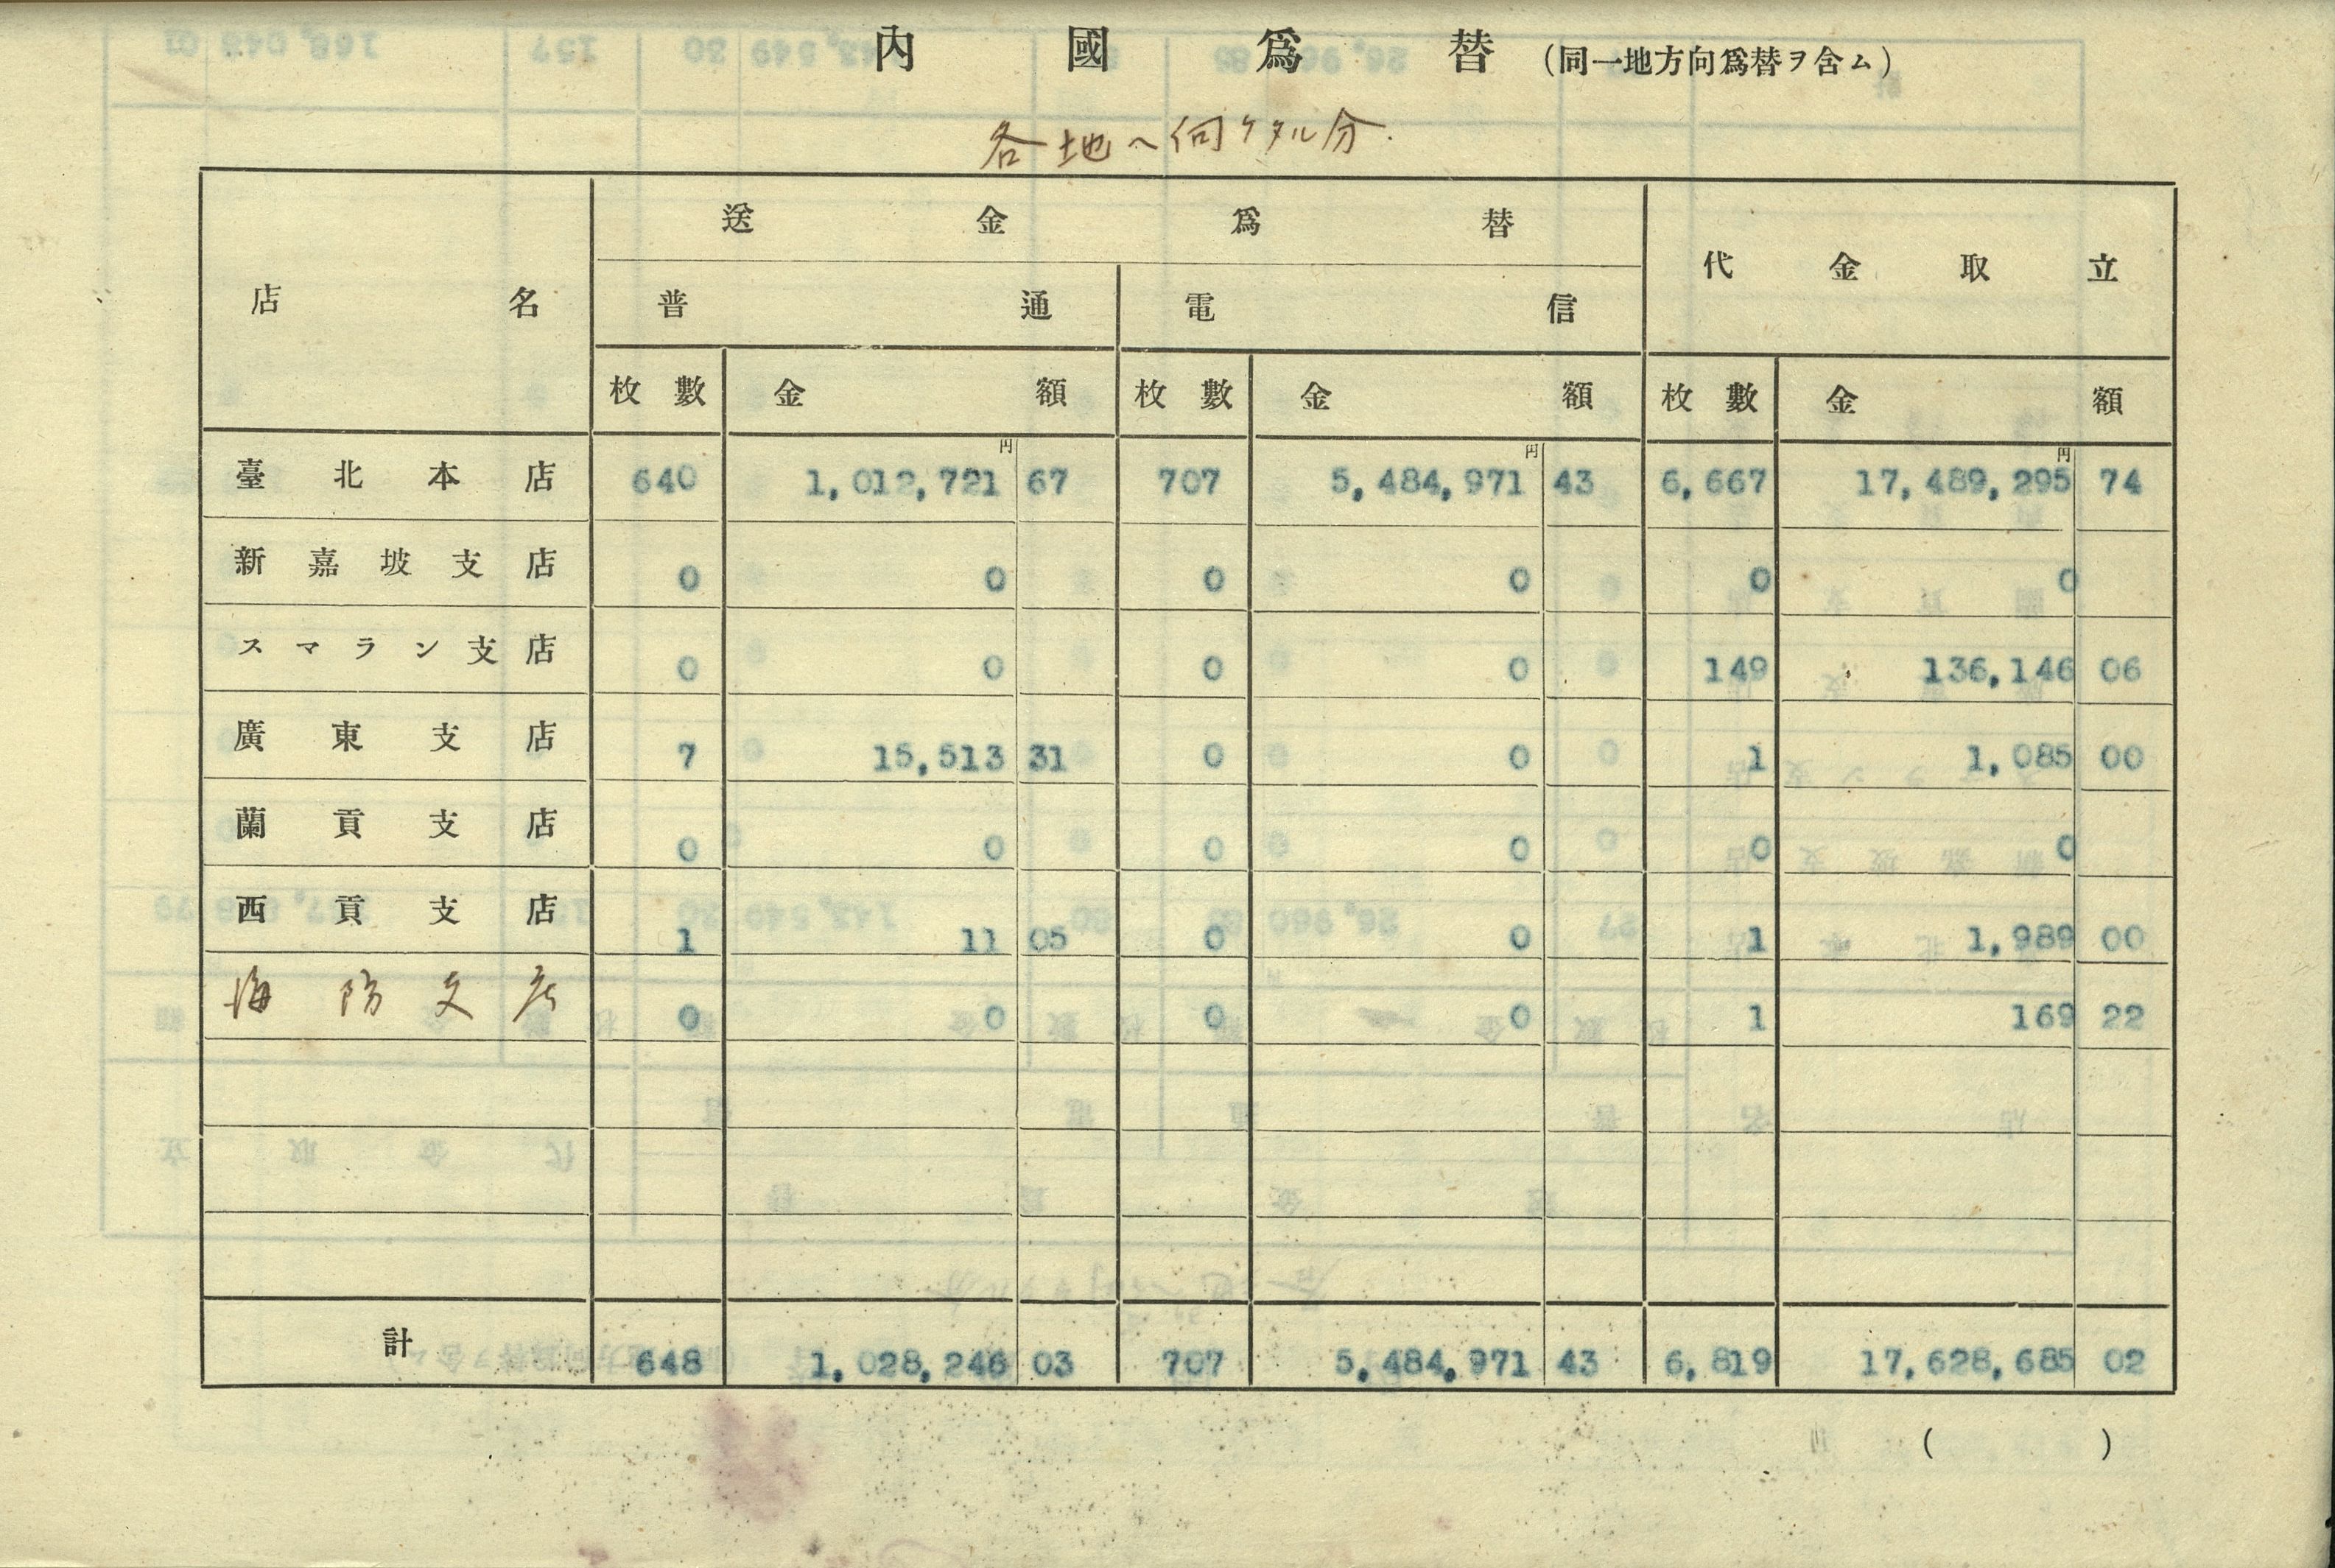 內國爲替(同一地方向爲替ヲ含ム)
各地へ向ケタル分.
店名 送金爲替 代金取立
普通 電信
枚數 金額 枚數 金額 枚數 金額
円 円 円
臺北本店 640 1,012,721 67 707 5,484,971 43 6,667 17,489,295 74
新嘉坡支店 0 0 0 0 0 0
スマラン支店 0 0 0 0 149 136,146 06
廣東支店 7 15,513 31 0 0 1 1,085 00
蘭貢支店 0 0 0 0 0 0
西貢支店 1 11 05 0 0 1 1,989 00
海防支店 0 0 0 0 1 169 22
計 648 1,028,246 03 707 5,484,971 43 6,819 17,628,685 02
( )